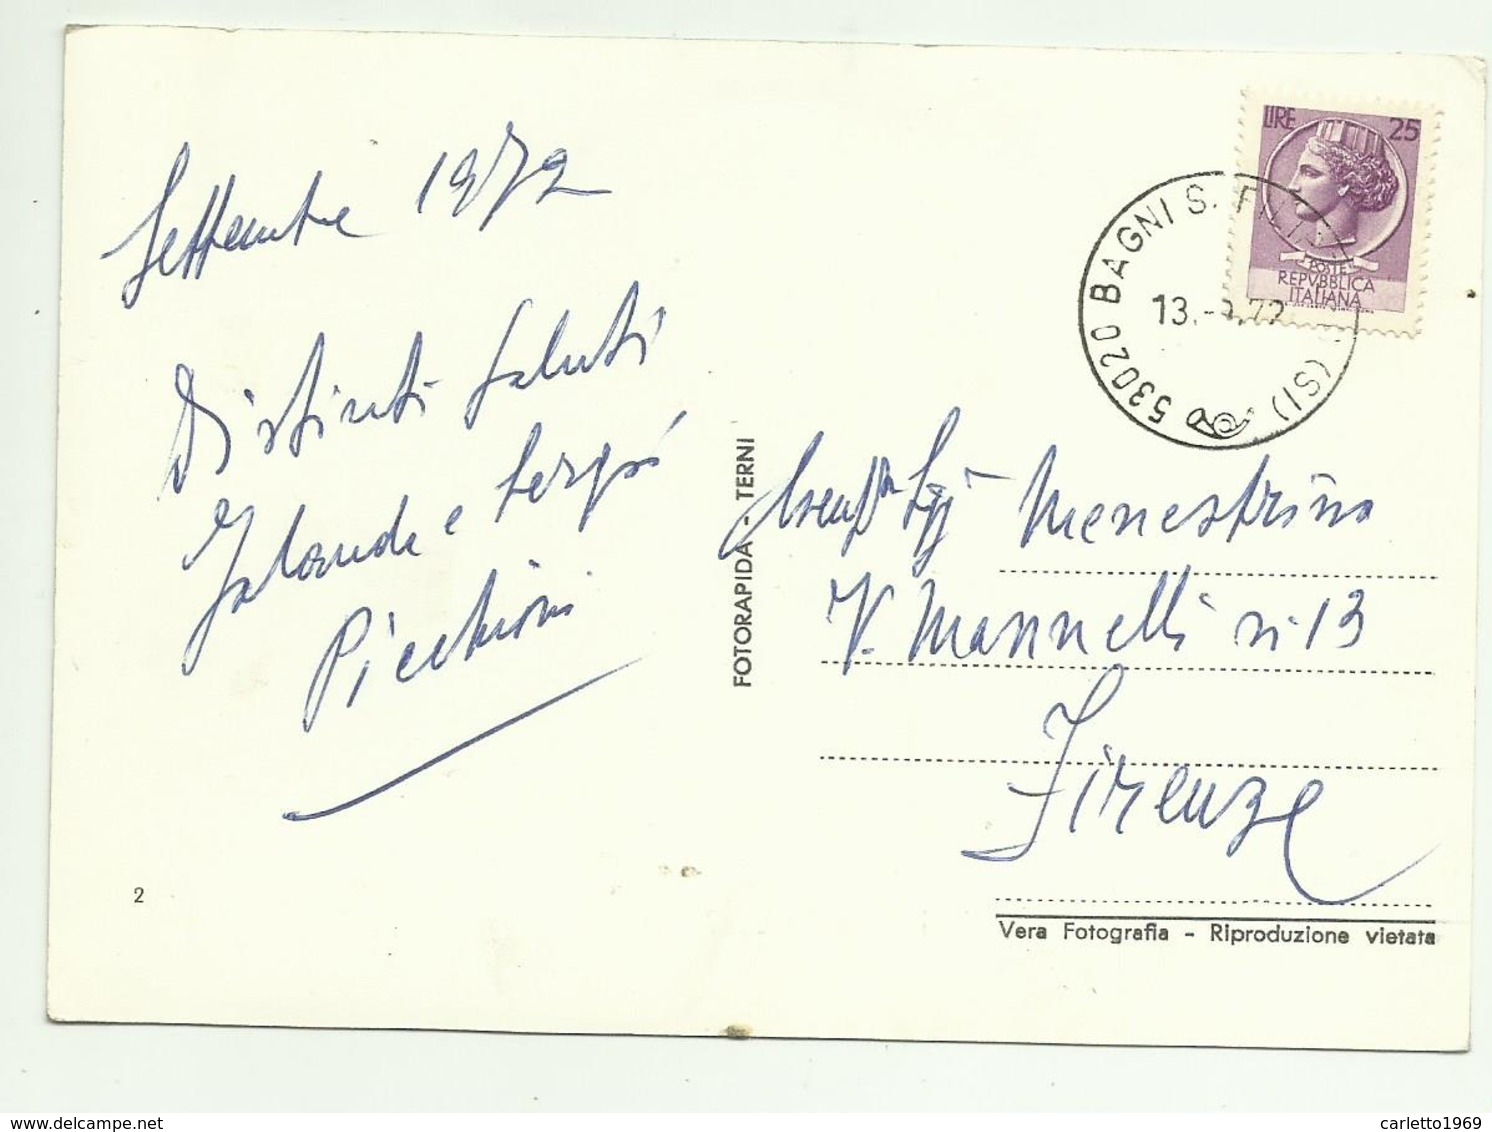 Settembre 1972
Distinti Saluti
Jolanda e
Picchioni
2
FOTORAPIDA - TERNI
LIRE 25
POSTE
REPVBBLICA
ITALIANA
53020 BAGNI S. FILIPPO (SI)
13.-9.72
Menestrina
V. Mannelli n. 13
Firenze
Vera Fotografia - Riproduzione vietata
www.delcampe.net
carletto1969